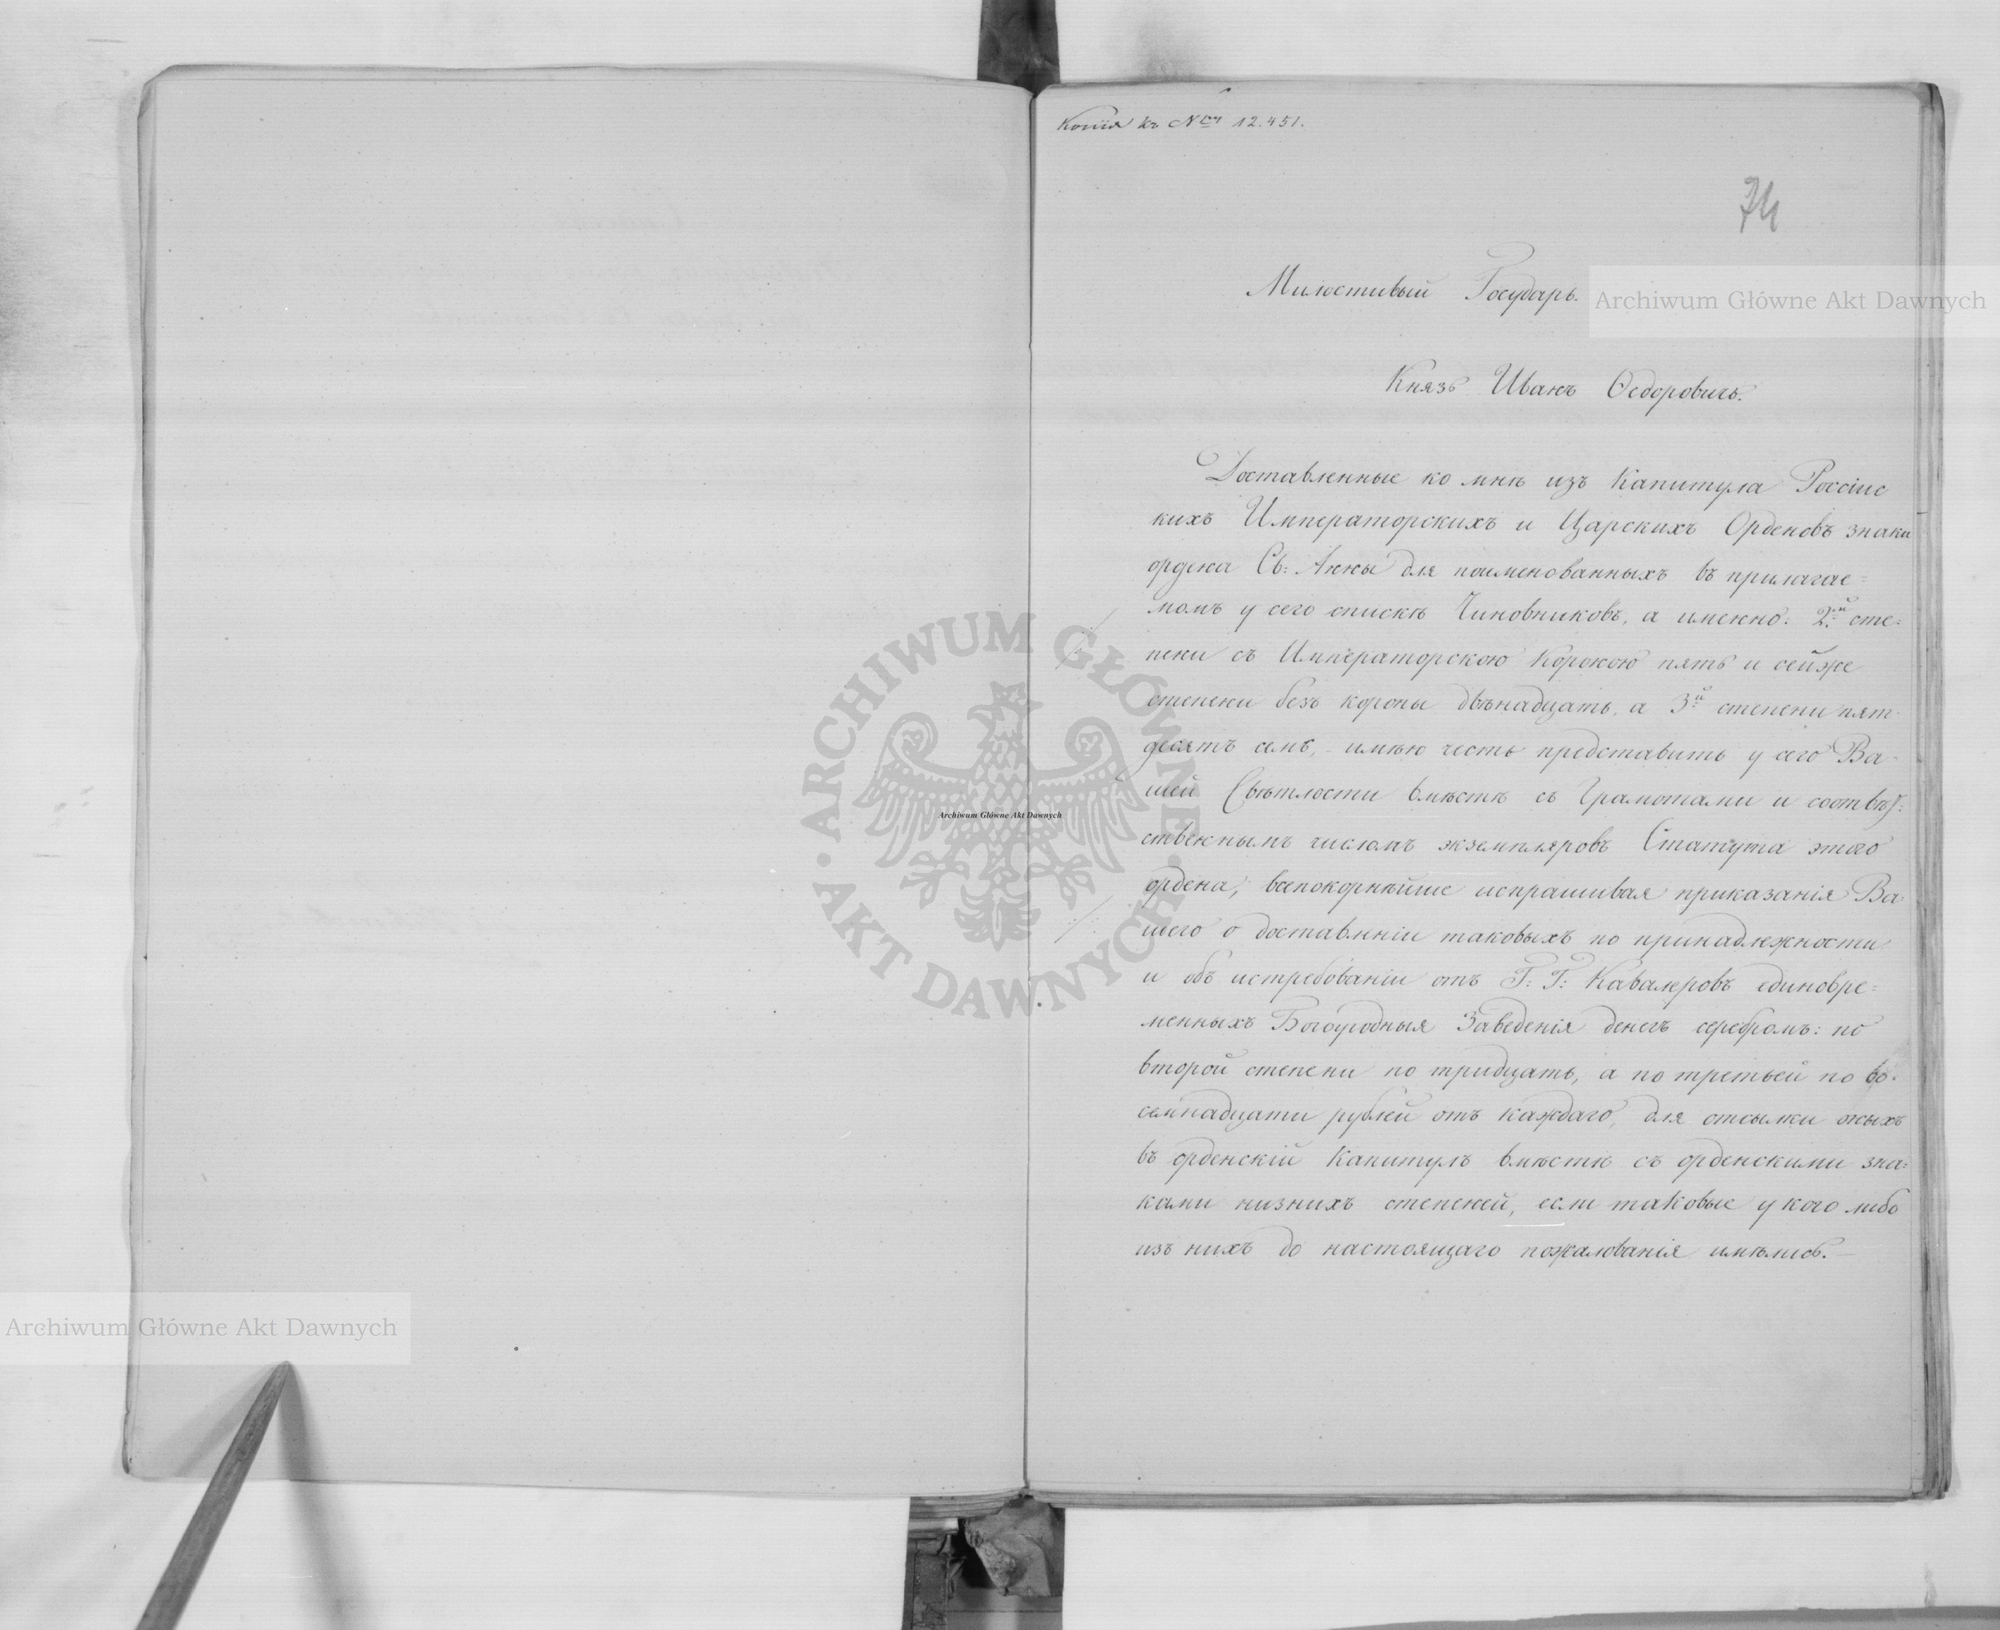 Копія къ № 12.451.
74
Милостивый Государь.
Князь Иванъ Ѳедоровичъ.
Доставленные ко мнѣ изъ Капитула Россійс
кихъ Императорскихъ и Царскихъ Орденовъ знаки
ордена Св: Анны для поименованныхъ въ прилагае=
момъ у сего спискѣ Чиновниковъ, а именно: 2.й сте=
пени съ Императорскою Короною пять и сейже
степени безъ короны двѣнадцать, а 3й степени пят
десятъ семь, имѣю честь представить у сего Ва-
шей Свѣтлости вмѣстѣ съ Грамотами и соотвѣт=
ственнымъ числомъ экземпляровъ Статута этого
ордена, всепокорнѣйше испрашивая приказанія Ва-
шего о доставленіи таковыхъ по принадлежности
и объ истребованіи отъ Г: Г: Кавалеровъ единовре=
менныхъ Богоугодныя Заведенія денегъ серебромъ: по
второй степени по тридцать, а по третьей по во-
семнадцати рублей отъ каждаго, для отсылки оныхъ
въ орденскій Капитулъ вмѣстѣ съ орденскими зна=
ками низнихъ степеней, если таковые у кого либо
изъ нихъ до настоящаго пожалованія имѣлись.—
Archiwum Główne Akt Dawnych
Archiwum Główne Akt Dawnych
Archiwum Główne Akt Dawnych
ARCHIWUM GŁÓWNE AKT DAWNYCH